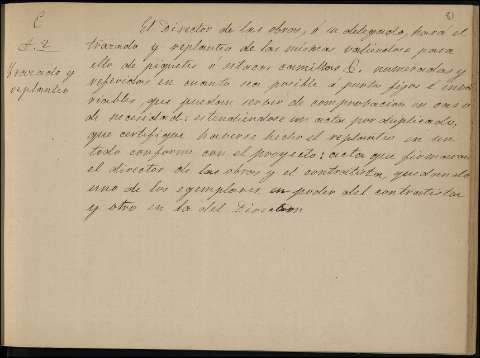 El Director de las obras, ó su delegado, hará el
trazado y replanteo de las mismas valiendose para
ello de piquetes ó estacas numeradas y
referidas en cuanto sea posible á puntos fijos é inva
riables, que puedan servir de comprobacion en caso
de necesidad; estendiendose un acta por duplicado,
que certifique haberse hecho el replanteo en un
todo conforme con el proyecto; acta que firmaran
el director de las obras y el contratista, quedando
uno de los egemplares en poder del contratista
y otro en la del Director
Trazado y
replanteo